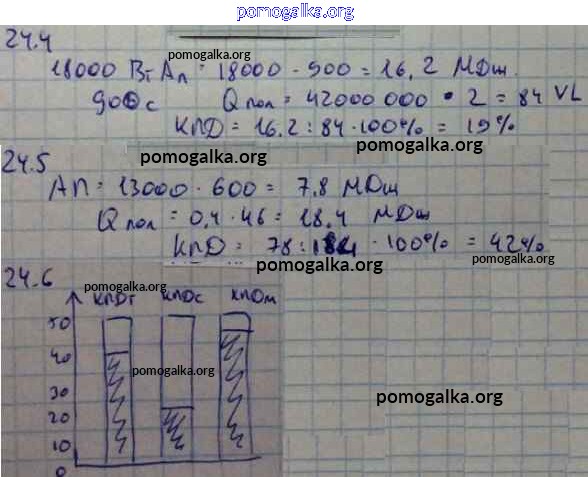 pomogalka.org
24.4
18000 Вт Ап = 18000 · 900 = 16,2 МДж.
pomogalka.org
900 с Qпол = 42000 000 · 2 = 84
КПД = 16,2 : 84 · 100% = 19%
pomogalka.org
pomogalka.org
24.5
Ап = 13000 · 600 = 7,8 МДж
pomogalka.org
Qпол = 0,4 · 46 = 18,4 МДж
КПД = 78 : 184 · 100% = 42%
pomogalka.org
pomogalka.org
24.6
pomogalka.org
КПДт КПДс КПДм
50
40
pomogalka.org
30
pomogalka.org
20
10
0